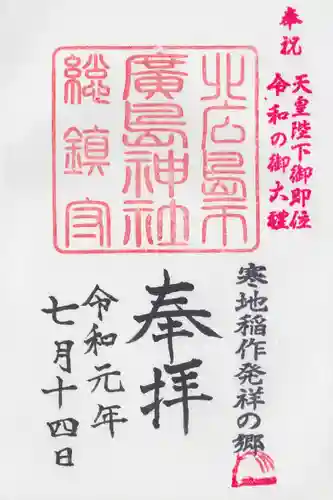 奉祝
天皇陛下御即位
令和の御大禮
北広島市
廣島神社
総鎮守
寒地稲作発祥の郷
奉拝
令和元年
七月十四日